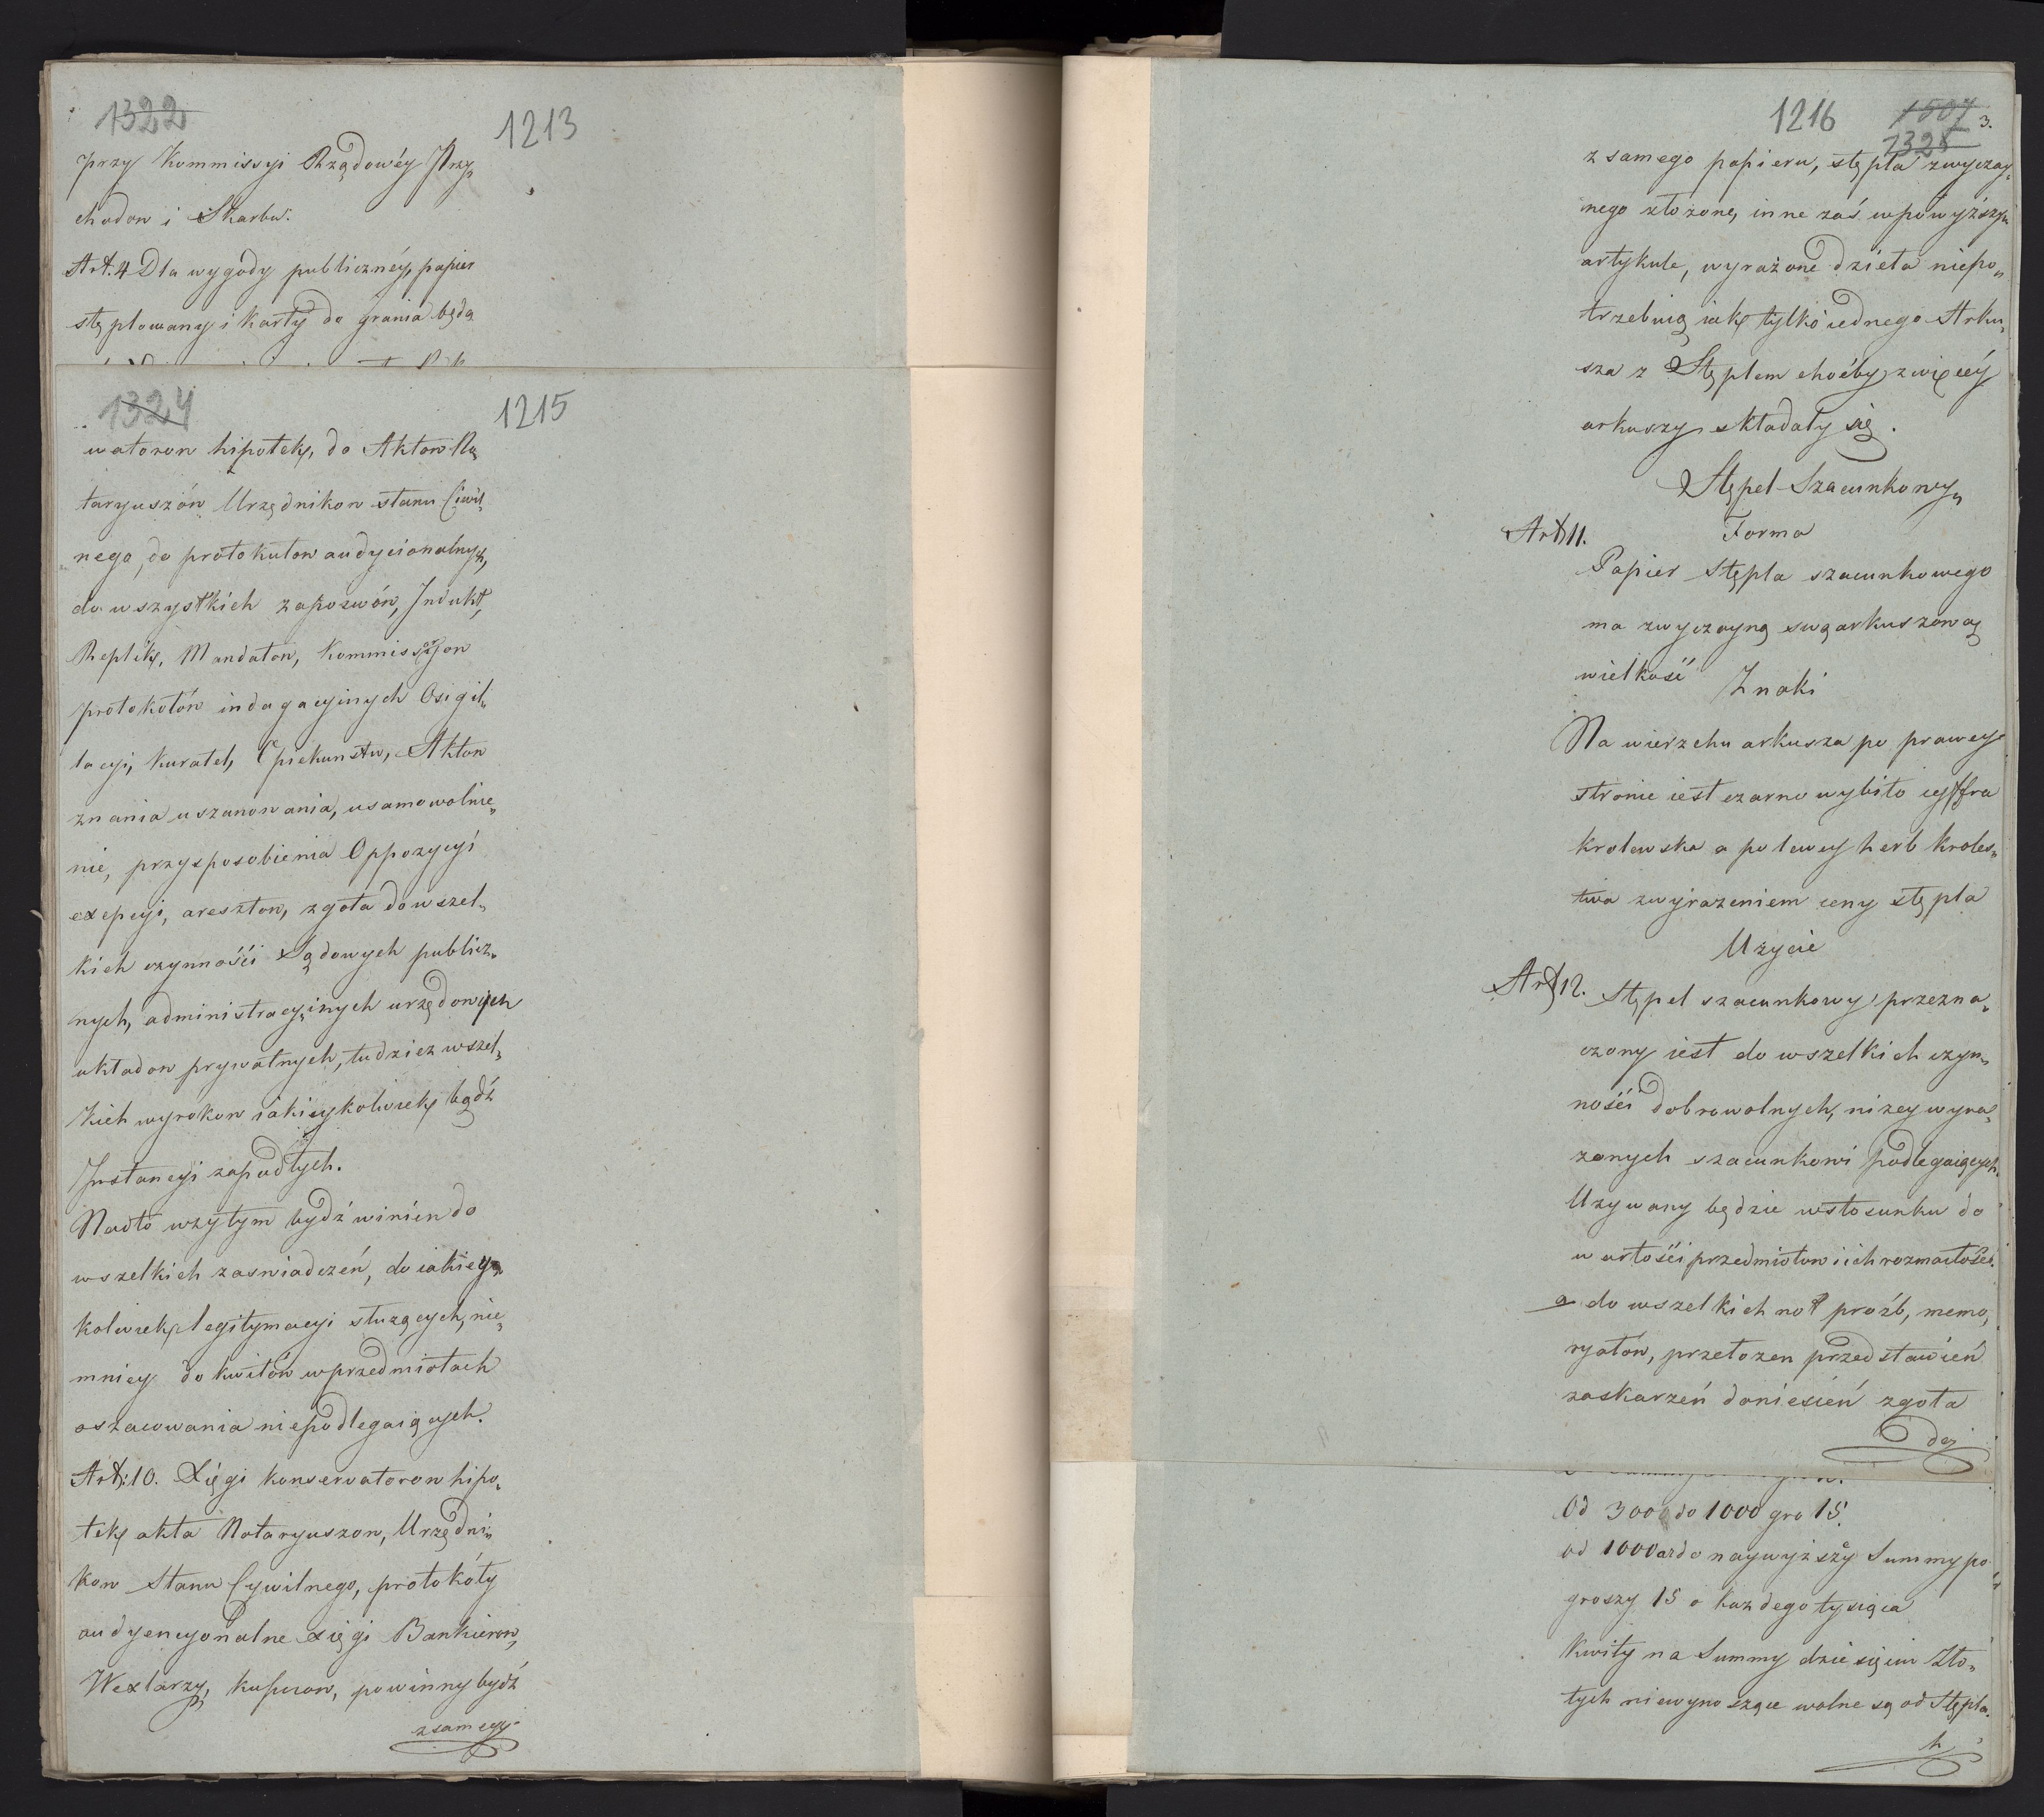 1322
1213
przy Kommissyi Rządowéy Przy„
chodow i Skarbu.
Art. 4 Dla wygody publicznéy, papier
stęplowany i karty do grania będą
1324
1215
watorow hipotek, do Aktow No„
taryuszów Urzędnikow stanu Ciwil„
nego, do protokułow audycionalnych,
do wszystkich zapozwów, Indukt,
Replik, Mandatow, Kommissyow
protokołów indagacyinych Osigil„
lacyi, kuratel, Opiekunstw, Aktow
znania uszanowania, usamowolnie„
nie, przysposobienia Oppozycyi
excepcyi, aresztow, zgoła do wszel„
kich czynności Sądowych publicz„
nych, administracyinych urzędowych
układow prywatnych, tudziez wszel„
kich wyrokow iakieykolwiek bądź
Instancyi zapadłych.
Nadto wzytym bydź winien do
wszelkich zaswiadczeń, do iakiey„
kolwiek legitymacyi służących, nie„
mniey do kwitów w przedmiotach
oszacowania niepodlegaiących.
Art: 10. Xięgi konserwatorow hipo„
tek akta Notaryuszow, Urzędni„
kow Stanu Cywilnego, protokóły
audyencyonalne xięgi Bankierow,
Wexlarzy, kupcow, powinny bydź
z samego
1216
1507
3.
1325
z samego papieru, stępla zwyczay„
nego złożone, inne zaś w powyższym
artykule, wyrażone dzieła niepo„
trzebuią iak tylko iednego Arku„
sza z Stęplem choćby z więcéy
arkuszy składały się.
Stępel Szacunkowy„
Art 11. Forma
Papier stępla szacunkowego
ma zwyczayną swą arkuszową
wielkość
Znaki
Na wierzchu arkusza po prawey
stronie iest czarno wybito cyffra
krolewska a po lewey herb kroles„
twa z wyrażeniem ceny stępla
Uzycie
Art 12. Stępel szacunkowy przezna„
czony iest do wszelkich czyn„
ności dobrowolnych, nizey wyra„
zonych szacunkowi podlegaiących.
Uzywany będzie w stosunku do
wartości przedmiotow i ich rozmaitości.
a do wszelkich not prośb, memo„
ryałów, przełozen przedstawień
zaskarzeń doniesień zgoła
do
Od 3000 do 1000 gro 15.
od 1000 az do naywyższy Summy po
groszy 15 o kazdego tysiąca
Kwity na Summy dziesięciu Zło„
tych niewynoszące wolne są od Stępla.